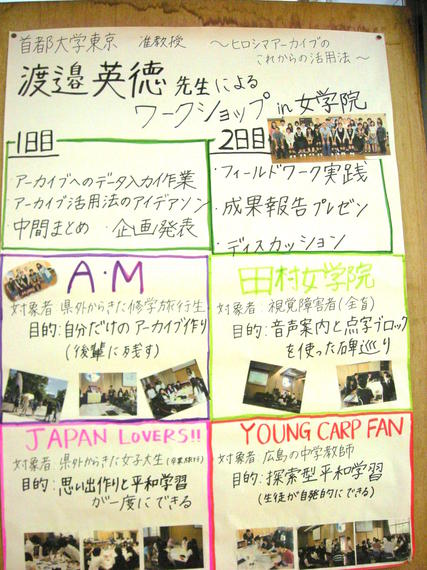 首都大学東京 准教授 ～ヒロシマアーカイブの
これからの活用法～
渡邉英徳先生による
ワークショップ in 女学院
1日目
・アーカイブへのデータ入力作業
・アーカイブ活用法のアイデアソン
・中間まとめ ・企画発表
2日目
・フィールドワーク実践
・成果報告プレゼン
・ディスカッション
A・M
対象者:県外からきた修学旅行生
目的:自分だけのアーカイブ作り
(後輩に残す)
田村女学院
対象者:視覚障害者(全盲)
目的:音声案内と点字ブロック
を使った碑巡り
JAPAN LOVERS!!
対象者:県外からきた女子大生(卒業旅行)
目的:思い出作りと平和学習
が一度にできる
YOUNG CARP FAN
対象者:広島の中学教師
目的:探索型平和学習
(生徒が自発的にできる)